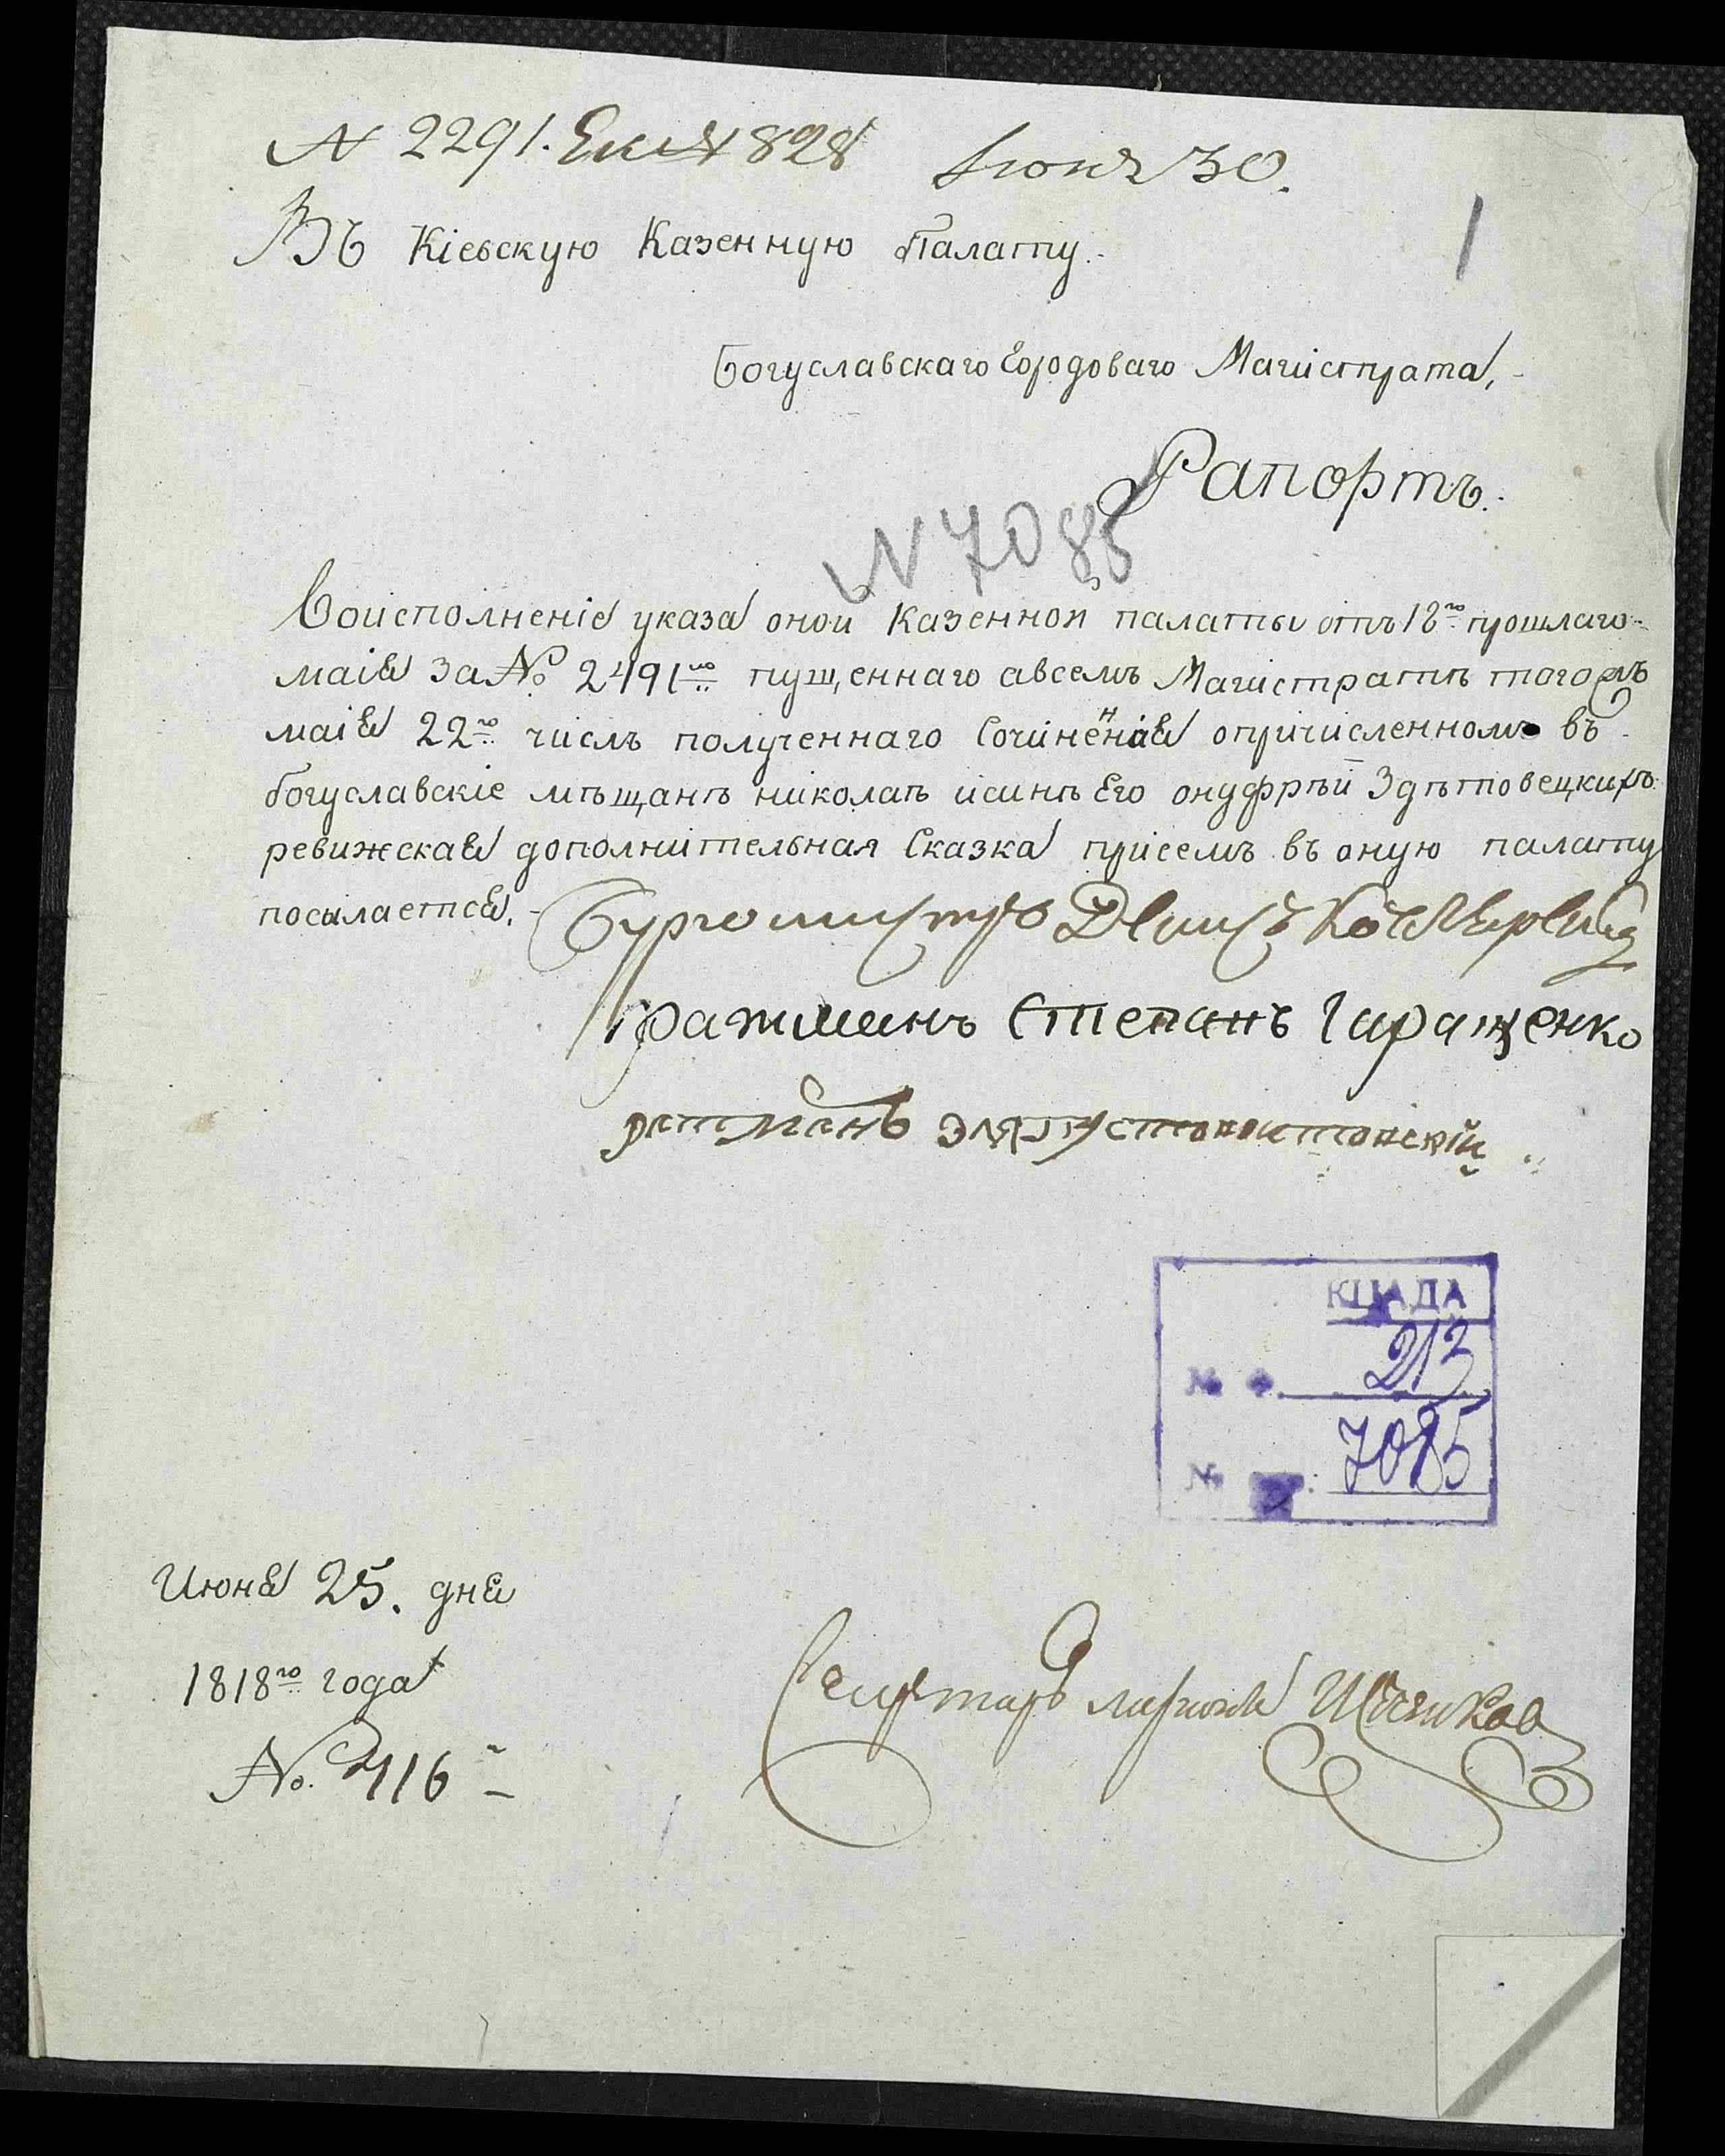 № 2291. 828 Июня 30.
Въ Кіевскую Казенную Палату.
1
Богуславскаго Городоваго Магистрата,
Рапортъ.
N 7085
Воисполненіе указа оной Казенной палаты отъ 18го прошлаго
маія за № 2491мъ пущеннаго авсемъ Магистратѣ тогожъ
маія 22го числъ полученнаго Сочинённая опричисленномъ въ
богуславскіе мѣщанѣ николаѣ исинѣ Его онуфрѣй Здѣтовецкихъ
ревижская дополнительная Сказка присемъ въ оную палату
посылается.
Бургомистръ
Ратманъ Степанъ Гаращенко
ратманъ
КЦАДА
№ ф. 213
№ 7085
Июня 25. дня
1818го года
№. 416
Секретарь